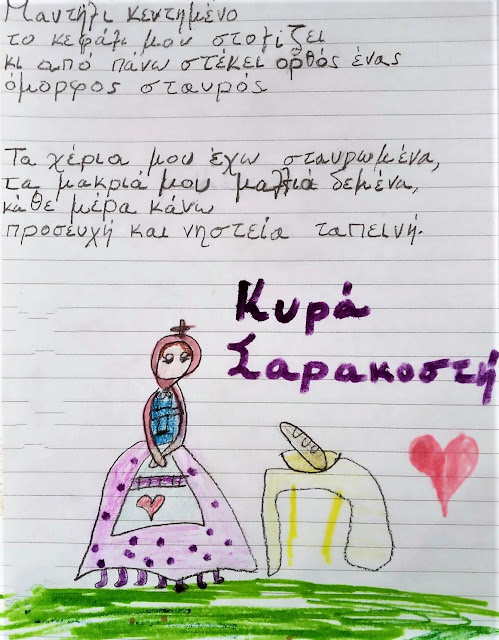 Μαντήλι κεντημένο
το κεφάλι μου στολίζει
κι από πάνω στέκει ορθός ένας
όμορφος σταυρός
Τα χέρια μου έχω σταυρωμένα,
τα μακριά μου μαλλιά δεμένα,
κάθε μέρα κάνω
προσευχή και νηστεία ταπεινή.
Κυρά
Σαρακοστή